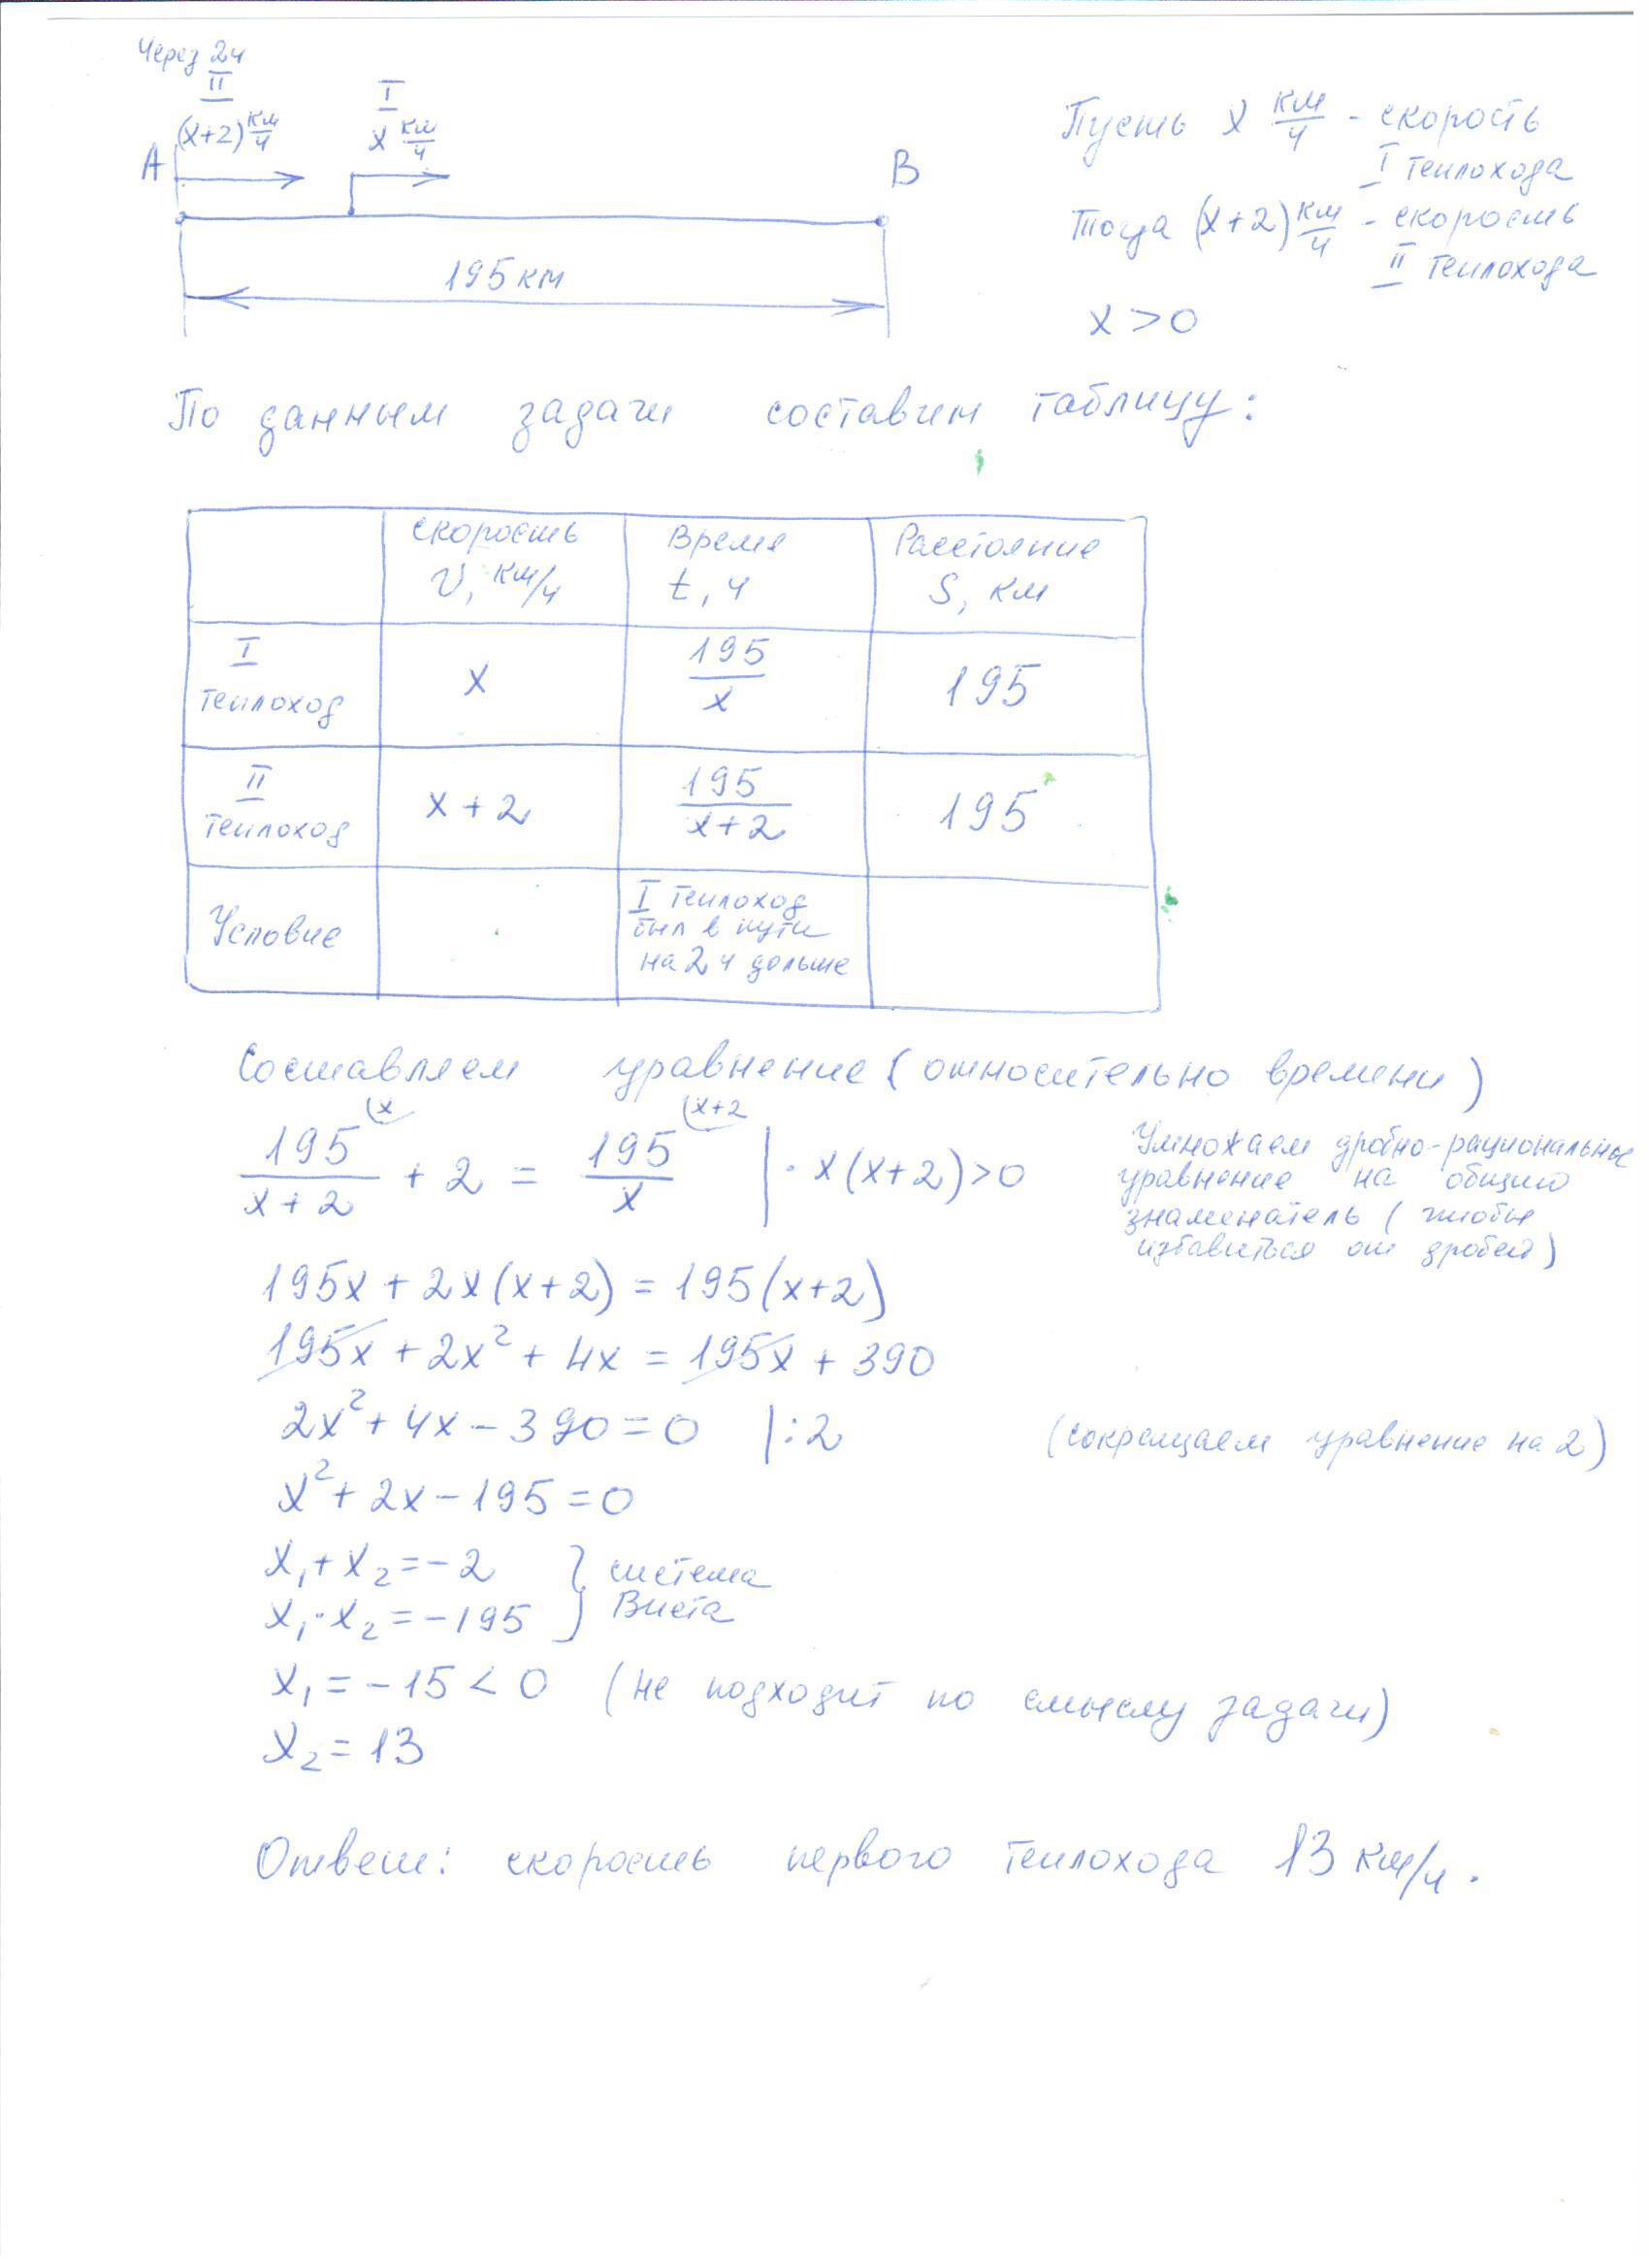 Через 2ч
II
(x+2) км/ч
I
x км/ч
A
B
195 км
Пусть x км/ч - скорость
I теплохода
Тогда (x+2) км/ч - скорость
II теплохода
x > 0
По данным задачи составим таблицу:
скорость
V, км/ч
Время
t, ч
Расстояние
S, км
I
теплоход
x
195/x
195
II
теплоход
x + 2
195/(x+2)
195
Условие
I теплоход
был в пути
на 2 ч дольше
Составляем уравнение (относительно времени)
(x
(x+2
195/(x+2) + 2 = 195/x | · x(x+2)>0
Умножаем дробно-рациональные
уравнение на общий
знаменатель (чтобы
избавиться от дробей)
195x + 2x(x+2) = 195(x+2)
195x + 2x² + 4x = 195x + 390
2x² + 4x - 390 = 0 |:2
(сокращаем уравнение на 2)
x² + 2x - 195 = 0
x₁ + x₂ = -2
x₁·x₂ = -195
} система
Виета
x₁ = -15 < 0 (не подходит по смыслу задачи)
x₂ = 13
Ответ: скорость первого теплохода 13 км/ч.